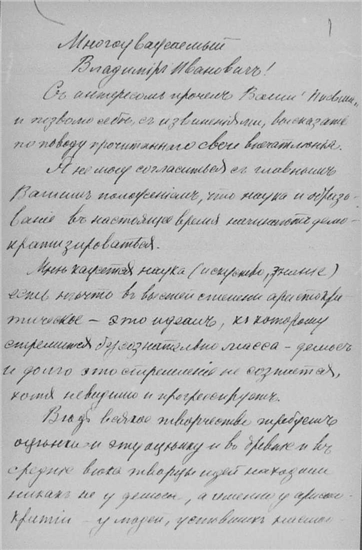 Многоуважаемый
Владиміръ Ивановичъ!
Съ интересомъ прочелъ Ваши
и позволю себѣ, съ извиненіями, высказать
по поводу прочитаннаго свои впечатлѣнія.
Я не могу согласиться съ главнымъ
Вашимъ положеніемъ, что наука и образо-
ваніе въ настоящее время начинаютъ демо-
кратизироваться.
Мнѣ кажется наука (искусство, знаніе)
есть нѣчто въ высшей степени аристокра-
тическое – это идеалъ, къ которому
стремится безсознательно масса – демосъ
и долго это стремленіе не сознается,
хотя невидимо и прогрессируетъ.
Вѣдь всякое творчество требуетъ
оцѣнки и эту оцѣнку и въ древніе и въ
средніе вѣка творцы идей находили
никакъ не у демоса, а именно у аристо-
кратіи – у людей, успѣвшихъ